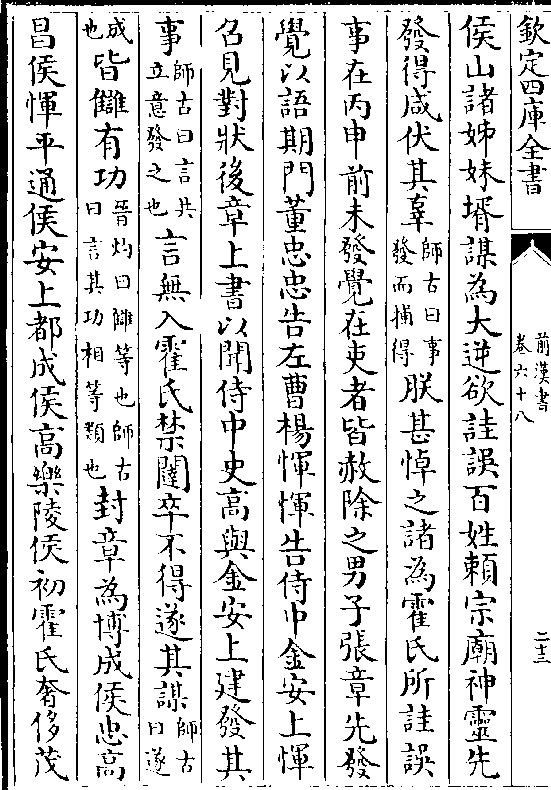 欽定四庫全書
前漢書
卷六十八
二十三
侯山諸姊妹壻謀為大逆欲詿誤百姓賴宗廟神靈先
發得咸伏其辜師古曰事發而捕得朕甚悼之諸為霍氏所詿誤
事在丙申前未發覺在吏者皆赦除之男子張章先發
覺以語期門董忠忠告左曹楊惲惲告侍中金安上惲
召見對狀後章上書以聞侍中史高與金安上建發其
事師古曰言共立意發之也言無入霍氏禁闥卒不得遂其謀師古曰遂
成也皆讎有功晉灼曰讎等也師古曰言其功相等類也封章為博成侯忠高
昌侯惲平通侯安上都成侯高樂陵侯初霍氏奢侈茂